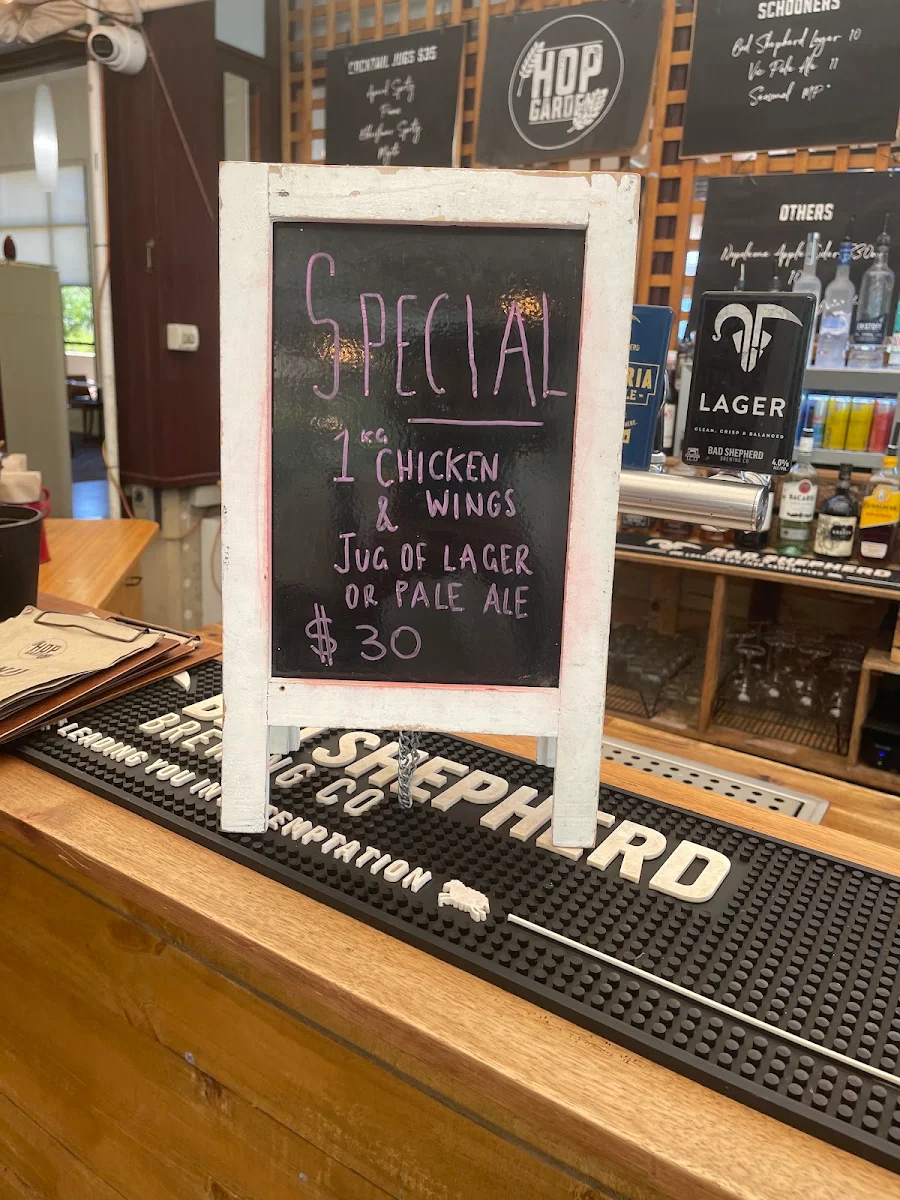 COCKTAIL JUGS $35
Aperol Spritz
Pimms
Elderflower Spritz
Mojito
HOP
GARDEN
SCHOONERS
Bad Shepherd Lager 10
Vic Pale Ale 11
Seasonal MP*
OTHERS
Apple Cider
SPECIAL
1KG CHICKEN
& WINGS
JUG OF LAGER
OR PALE ALE
$30
LAGER
CLEAN, CRISP & BALANCED
BAD SHEPHERD
BREWING CO
4.0%
RIA
LE
BACARDI
HOP
BAD SHEPHERD
SHEPHERD
BREWING CO
LEADING YOU IN
EMPTATION